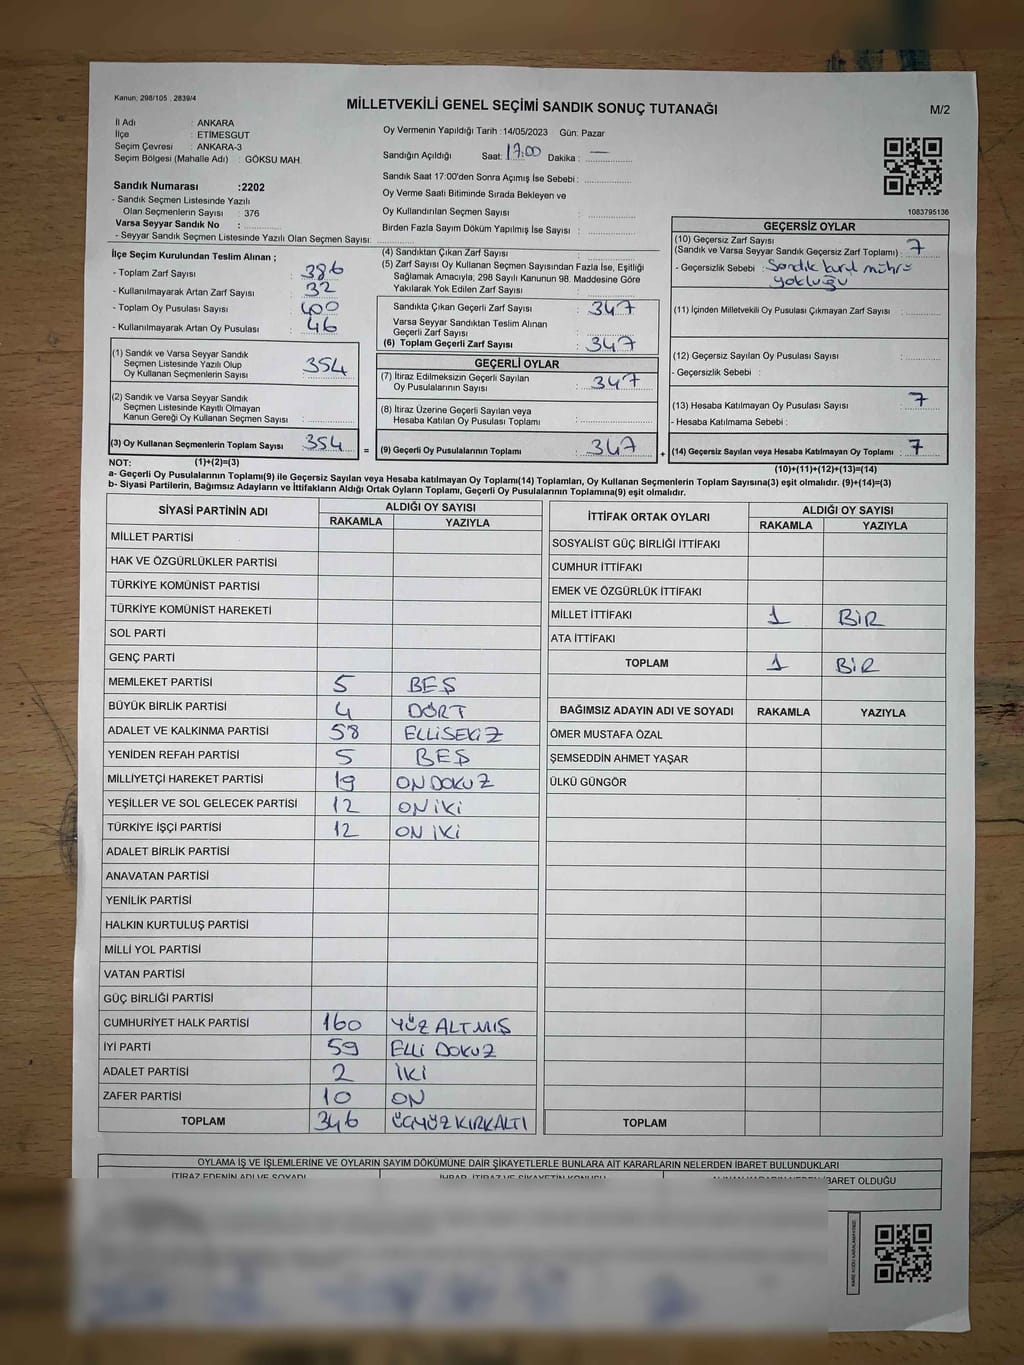 Kanun; 298/105 , 2839/4
MİLLETVEKİLİ GENEL SEÇİMİ SANDIK SONUÇ TUTANAĞI
M/2
İl Adı : ANKARA
İlçe : ETİMESGUT
Seçim Çevresi : ANKARA-3
Seçim Bölgesi (Mahalle Adı) : GÖKSU MAH.
Sandık Numarası :2202
- Sandık Seçmen Listesinde Yazılı
Olan Seçmenlerin Sayısı : 376
Varsa Seyyar Sandık No :
- Seyyar Sandık Seçmen Listesinde Yazılı Olan Seçmen Sayısı:
Oy Vermenin Yapıldığı Tarih : 14/05/2023 Gün: Pazar
Sandığın Açıldığı Saat: 17:00 Dakika : —
Sandık Saat 17:00'den Sonra Açımış İse Sebebi :
Oy Verme Saati Bitiminde Sırada Bekleyen ve
Oy Kullandırılan Seçmen Sayısı :
Birden Fazla Sayım Döküm Yapılmış İse Sayısı :
1083795136
İlçe Seçim Kurulundan Teslim Alınan ;
- Toplam Zarf Sayısı : 386
- Kullanılmayarak Artan Zarf Sayısı : 32
- Toplam Oy Pusulası Sayısı : 400
- Kullanılmayarak Artan Oy Pusulası : 46
(1) Sandık ve Varsa Seyyar Sandık
Seçmen Listesinde Yazılı Olup
Oy Kullanan Seçmenlerin Sayısı : 354
(2) Sandık ve Varsa Seyyar Sandık
Seçmen Listesinde Kayıtlı Olmayan
Kanun Gereği Oy Kullanan Seçmen Sayısı :
(3) Oy Kullanan Seçmenlerin Toplam Sayısı : 354 =
(1)+(2)=(3)
(4) Sandıktan Çıkan Zarf Sayısı :
(5) Zarf Sayısı Oy Kullanan Seçmen Sayısından Fazla İse, Eşitliği
Sağlamak Amacıyla; 298 Sayılı Kanunun 98. Maddesine Göre
Yakılarak Yok Edilen Zarf Sayısı :
Sandıkta Çıkan Geçerli Zarf Sayısı : 347
Varsa Seyyar Sandıktan Teslim Alınan
Geçerli Zarf Sayısı :
(6) Toplam Geçerli Zarf Sayısı : 347
GEÇERLİ OYLAR
(7) İtiraz Edilmeksizin Geçerli Sayılan
Oy Pusulalarının Sayısı : 347
(8) İtiraz Üzerine Geçerli Sayılan veya
Hesaba Katılan Oy Pusulası Toplamı :
(9) Geçerli Oy Pusulalarının Toplamı : 347 +
GEÇERSİZ OYLAR
(10) Geçersiz Zarf Sayısı
(Sandık ve Varsa Seyyar Sandık Geçersiz Zarf Toplamı) : 7
- Geçersizlik Sebebi : Sandık kurul mührü
yokluğu
(11) İçinden Milletvekili Oy Pusulası Çıkmayan Zarf Sayısı :
(12) Geçersiz Sayılan Oy Pusulası Sayısı :
- Geçersizlik Sebebi :
(13) Hesaba Katılmayan Oy Pusulası Sayısı : 7
- Hesaba Katılmama Sebebi :
(14) Geçersiz Sayılan veya Hesaba Katılmayan Oy Toplamı : 7
(10)+(11)+(12)+(13)=(14)
NOT:
a- Geçerli Oy Pusulalarının Toplamı(9) ile Geçersiz Sayılan veya Hesaba katılmayan Oy Toplamı(14) Toplamları, Oy Kullanan Seçmenlerin Toplam Sayısına(3) eşit olmalıdır. (9)+(14)=(3)
b- Siyasi Partilerin, Bağımsız Adayların ve İttifakların Aldığı Ortak Oyların Toplamı, Geçerli Oy Pusulalarının Toplamına(9) eşit olmalıdır.
SİYASİ PARTİNİN ADI ALDIĞI OY SAYISI
RAKAMLA YAZIYLA
MİLLET PARTİSİ
HAK VE ÖZGÜRLÜKLER PARTİSİ
TÜRKİYE KOMÜNİST PARTİSİ
TÜRKİYE KOMÜNİST HAREKETİ
SOL PARTİ
GENÇ PARTİ
MEMLEKET PARTİSİ 5 BEŞ
BÜYÜK BİRLİK PARTİSİ 4 DÖRT
ADALET VE KALKINMA PARTİSİ 58 ELLİSEKİZ
YENİDEN REFAH PARTİSİ 5 BEŞ
MİLLİYETÇİ HAREKET PARTİSİ 19 ONDOKUZ
YEŞİLLER VE SOL GELECEK PARTİSİ 12 ONİKİ
TÜRKİYE İŞÇİ PARTİSİ 12 ON İKİ
ADALET BİRLİK PARTİSİ
ANAVATAN PARTİSİ
YENİLİK PARTİSİ
HALKIN KURTULUŞ PARTİSİ
MİLLİ YOL PARTİSİ
VATAN PARTİSİ
GÜÇ BİRLİĞİ PARTİSİ
CUMHURİYET HALK PARTİSİ 160 YÜZ ALTMIŞ
İYİ PARTİ 59 ELLİ DOKUZ
ADALET PARTİSİ 2 İKİ
ZAFER PARTİSİ 10 ON
TOPLAM 346 ÜÇYÜZKIRKALTI
İTTİFAK ORTAK OYLARI ALDIĞI OY SAYISI
RAKAMLA YAZIYLA
SOSYALİST GÜÇ BİRLİĞİ İTTİFAKI
CUMHUR İTTİFAKI
EMEK VE ÖZGÜRLÜK İTTİFAKI
MİLLET İTTİFAKI 1 BİR
ATA İTTİFAKI
TOPLAM 1 BİR
BAĞIMSIZ ADAYIN ADI VE SOYADI RAKAMLA YAZIYLA
ÖMER MUSTAFA ÖZAL
ŞEMSEDDİN AHMET YAŞAR
ÜLKÜ GÜNGÖR
TOPLAM
OYLAMA İŞ VE İŞLEMLERİNE VE OYLARIN SAYIM DÖKÜMÜNE DAİR ŞİKAYETLERLE BUNLARA AİT KARARLARIN NELERDEN İBARET BULUNDUKLARI
İTİRAZ EDENİN ADI VE SOYADI İHBAR, İTİRAZ VE ŞİKAYETİN KONUSU İBARET OLDUĞU